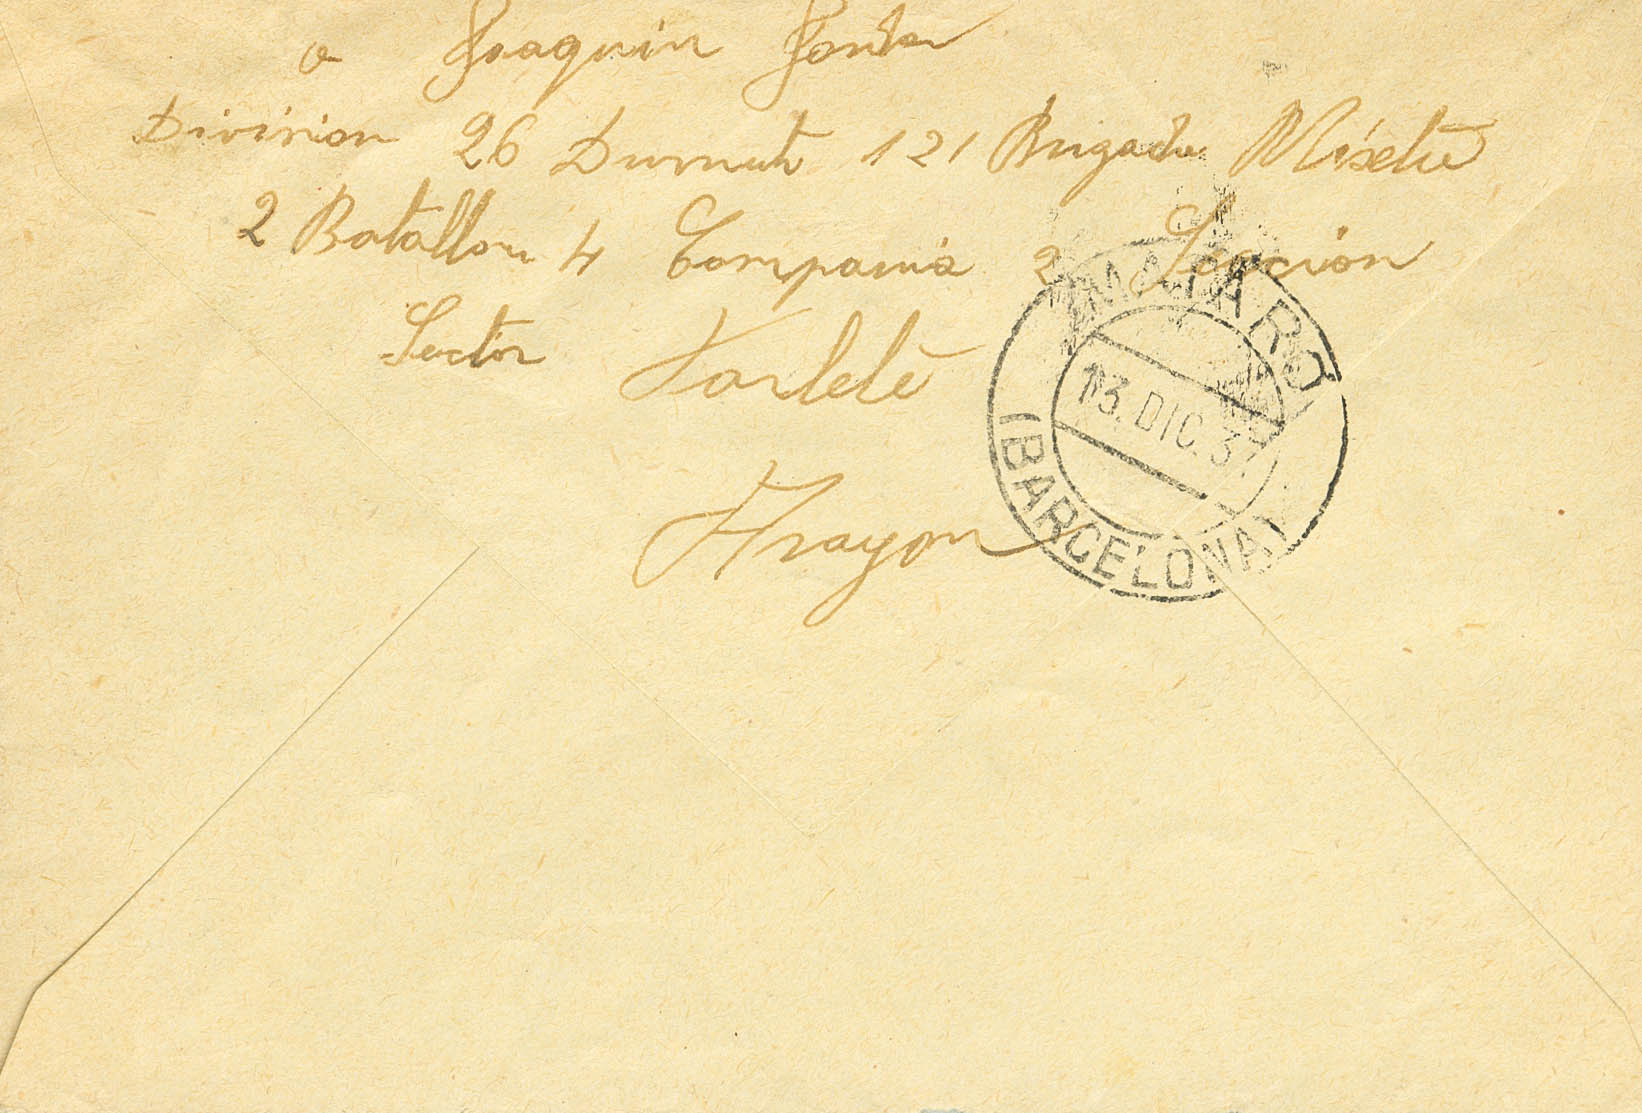 a Joaquin
Division 26 Durruti 121 Brigada Mixta
2 Batallon 4 Compania 2 Seccion
Sector Farlete
Aragon
MATARO
13. DIC. 37
(BARCELONA)